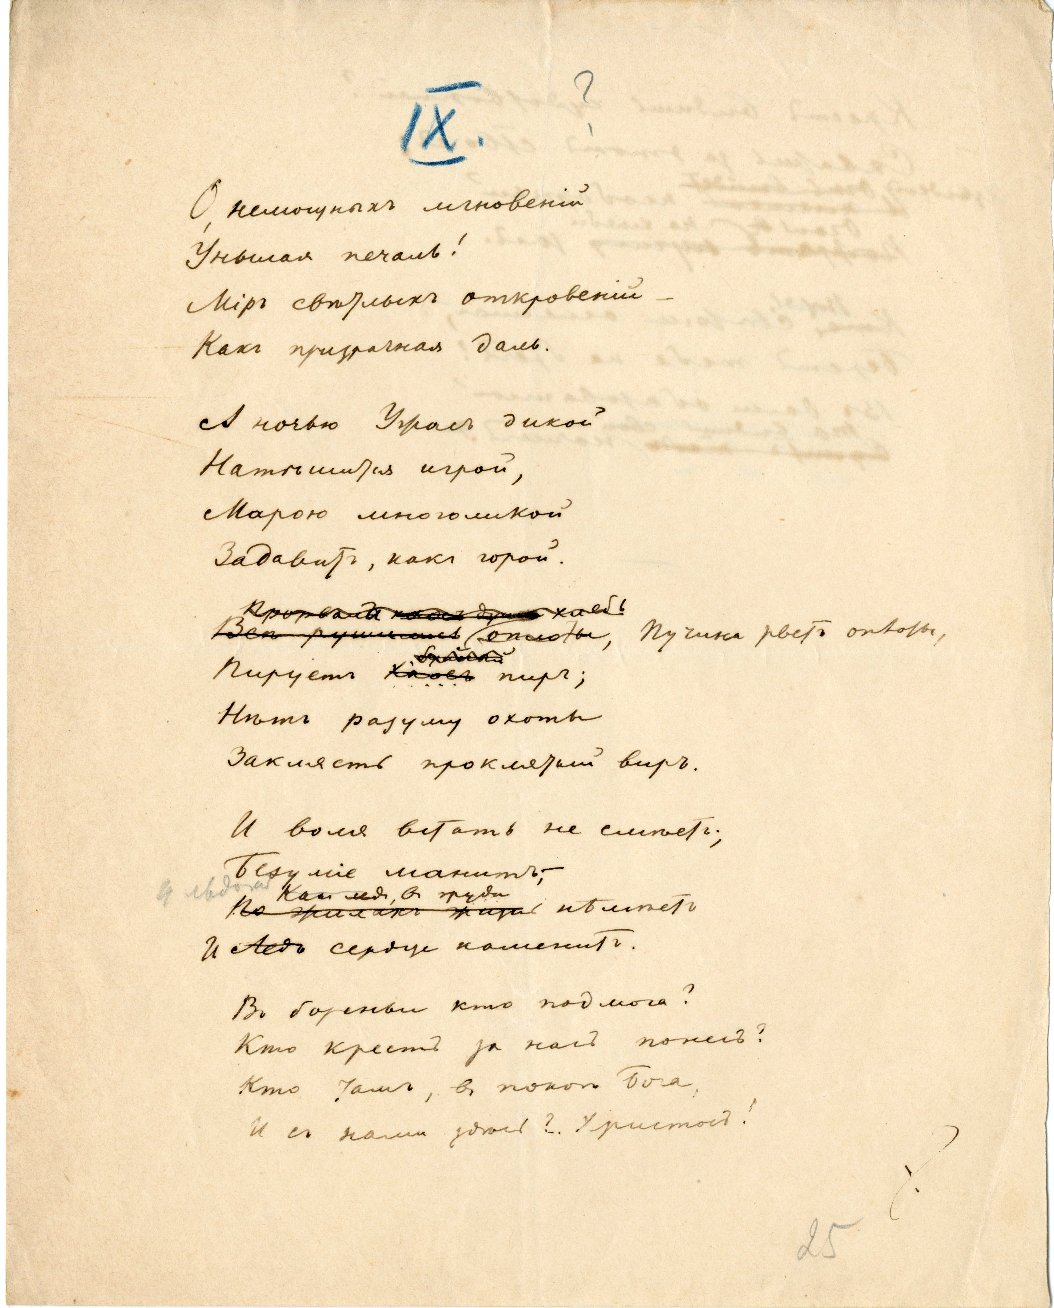 IX.
?
О, немощныхъ мгновенiй
Унылая печаль!
Мiръ свѣтлыхъ откровенiй –
Какъ призрачная даль.
А ночью Ужасъ дикой
Натѣшится игрой,
Марою многоликой
Задавитъ, какъ горой.
Прорвала хаосъ хлябь
Всѣ рушились оплоты, Пучина рветъ оплоты,
бойкій
Пируетъ хаосъ пиръ;
Нѣтъ разуму охоты
Заклясть проклятый виръ.
И воля встать не смѣетъ;
Безумiе манитъ;
Какъ ледъ, въ груди
По жиламъ жизнь нѣмѣетъ
И Ледъ сердце каменитъ.
Въ бореньи кто подмога?
Кто крестъ за насъ понесъ?
Кто тамъ, въ покоѣ Бога,
И съ нами здѣсь? Христосъ!
?
25